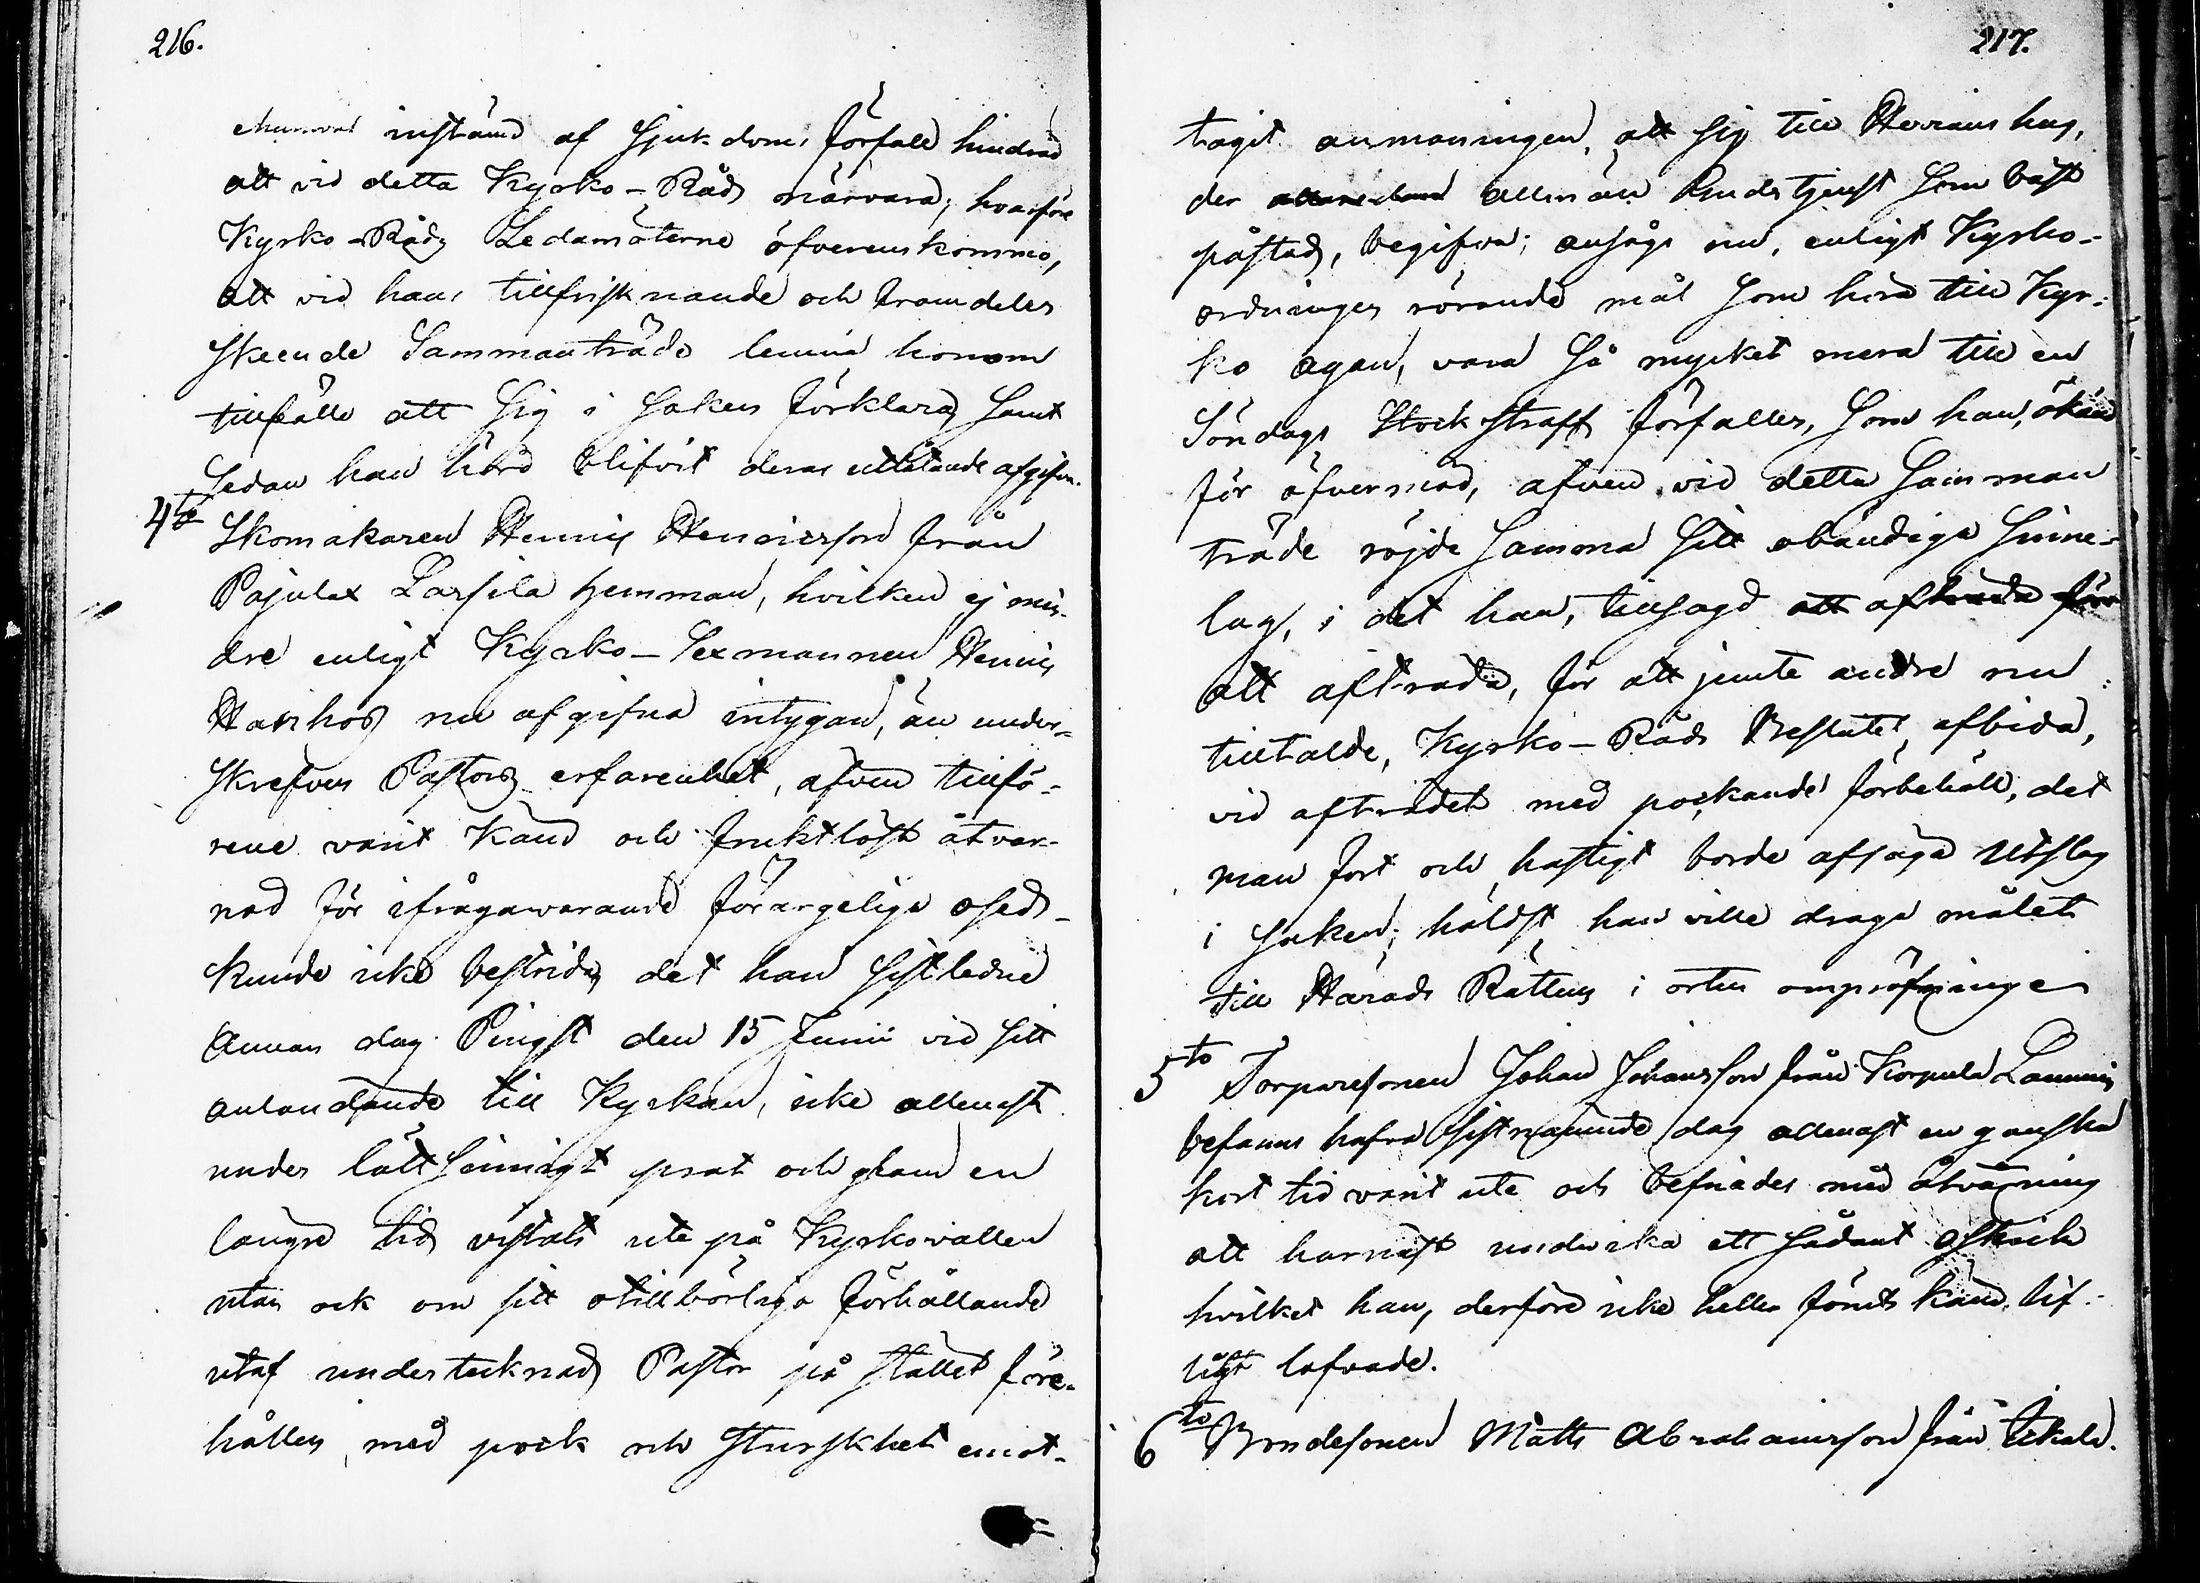 216.
instämd af Sjukdoms förfall hindrad
att vid detta Kyrko-Råd närvara; hvarföre
Kyrko-Råds Ledamöterne öfverenskommo,
att vid hans tillfrisknande och framdeles
skeende Sammanträde lemna honom
tillfälle att sig i Saken förklara, samt
sedan han hörd blifvit deras utlåtande afgifva.
4to Skomakaren Henric Henricsson från
Pajula Larsila hemman, hvilken ej min-
dre enligt Kyrko-Sexmannen Henric
nu afgifna intygan, än under-
skrefven Pastors erfarenhet, äfven tillfö-
rene varit känd och fruktlöst åtvar-
nad för ifrågavarande förargeliga osed-
kunde icke bestrida, det han sistledne
Annan dag Pingst den 15 Junii vid sitt
anländande till Kyrkan, icke allenast
under lättsinnigt prat och glam en
längre tid vistats ute på Kyrkovallen
utan ock om sitt otillbörliga förhållande
utaf undertecknad Pastor på stället före-
hållen, med pock och sturskhet emot-
217.
tagit anmaningen, att sig till Herrans hus,
der allmän Gudstjenst som bäst
påstod, begifva; ansågs nu, enligt Kyrko-
ordningen rörande mål som höra till Kyr-
ko agan, vara så mycket mera till en
Söndags Stockstraff förfallen, som han, ökänd
för öfvermod, äfven vid detta Samman
träde röjde samma sitt obändiga sinne-
lag, i det han, tillsagd att
att afträda, för att jemte andre nu
tilltalde, Kyrko-Råds Beslutet afbida,
vid afträdet med pockande förbehöll, det
man fort och hastigt borde afsäga Utslag
i Saken; häldst han ville draga målet
till Härads Rättens i orten ompröfning.
5to Torparesonen Johan Johansson från Korpula Lammi
befanns hafva sistnämnde dag allenast en ganska
kort tid varit ute och befriades med åtvarning
att härnäst undvika ett sådant oskick
hvilket han, derföre icke heller förut känd, lif-
ligt lofvade.
6to Bondesonen Matts Abrahamsson från